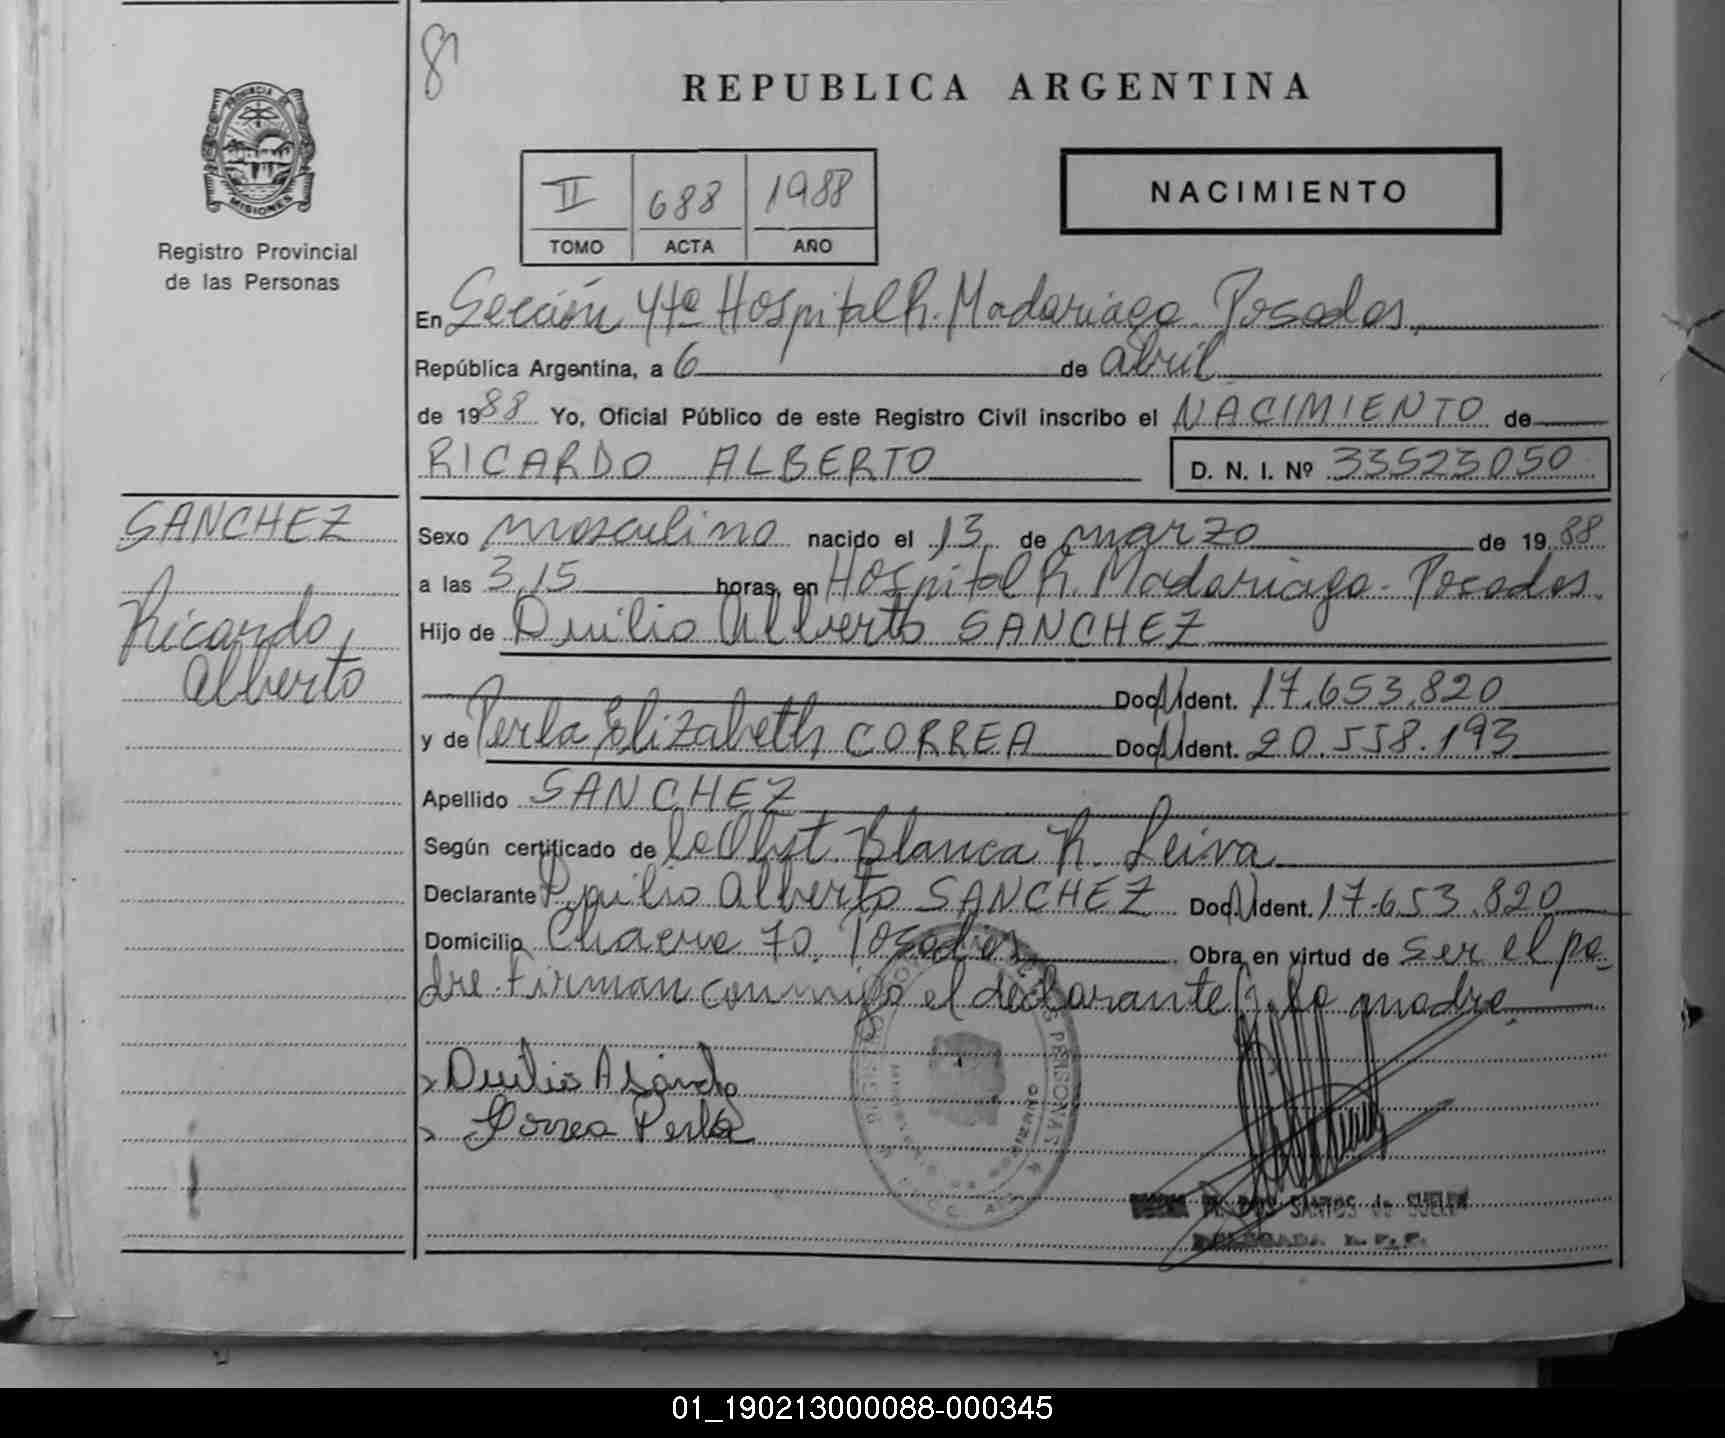 8
REPUBLICA ARGENTINA
PROVINCIA DE
MISIONES
Registro Provincial
de las Personas
II 688 1988
TOMO ACTA AÑO
NACIMIENTO
En Sección 4ta Hospital R. Madariaga. Posadas.
República Argentina, a 6 de abril
de 1988 Yo, Oficial Público de este Registro Civil inscribo el NACIMIENTO de
RICARDO ALBERTO D. N. I. Nº 33523050
SANCHEZ
Ricardo
Alberto
Sexo masculino nacido el 13 de marzo de 1988
a las 3,15 horas, en Hospital R. Madariaga - Posadas.
Hijo de Duilio Alberto SANCHEZ
Doc. Ident. 17.653.820
y de Perla Elizabeth CORREA Doc. Ident. 20.558.193
Apellido SANCHEZ
Según certificado de la Obst. Blanca R. Leiva
Declarante Duilio Alberto SANCHEZ Doc. Ident. 17.653.820
Domicilio Chacra 70. Posadas Obra en virtud de ser el pa-
dre. Firman conmigo el declarante y la madre.
Duilio A
Correa Perla
DOS SANTOS de
DELEGADA R. P. P.
01_190213000088-000345